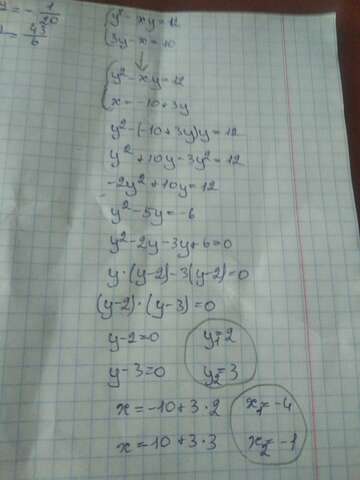 y = -1/20
43/6
{ y² - xy = 12
{ 3y - x = 10
↓
{ y² - xy = 12
{ x = -10 + 3y
y² - (-10 + 3y)y = 12
y² + 10y - 3y² = 12
-2y² + 10y = 12
y² - 5y = -6
y² - 2y - 3y + 6 = 0
y · (y-2) - 3(y-2) = 0
(y-2) · (y-3) = 0
y - 2 = 0 y₁ = 2
y - 3 = 0 y₂ = 3
x = -10 + 3 · 2 x₁ = -4
x = -10 + 3 · 3 x₂ = -1